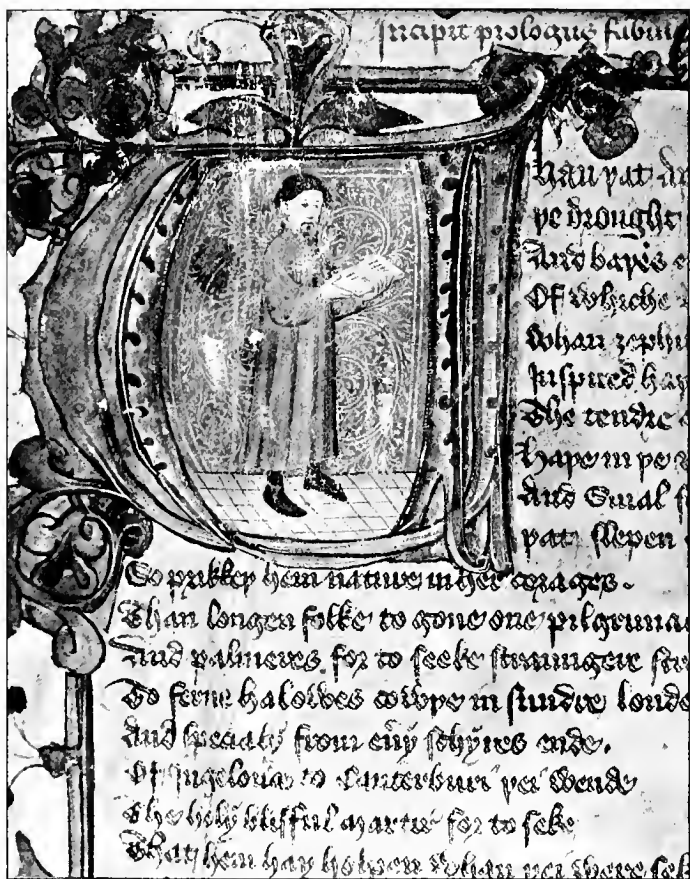 Incipit prologus fabul
Whan þat
þe drought
And baþes
Of whiche
Whan zephir
Inspired haþ
The tendre
Haþe in þe
And Smal f
þat slepen
So prikkeþ hem nature in her corages.
Than longen folke to gone one pilgrima
And palmeres for to seeke straungere str
To ferne halowes cowþe in sundre londe
And specialy from euy schyres ende.
Of Ingelond to Canterburi þei wende
The holy blisful martir for to seke
That hem haþ holpen whan þei were sek